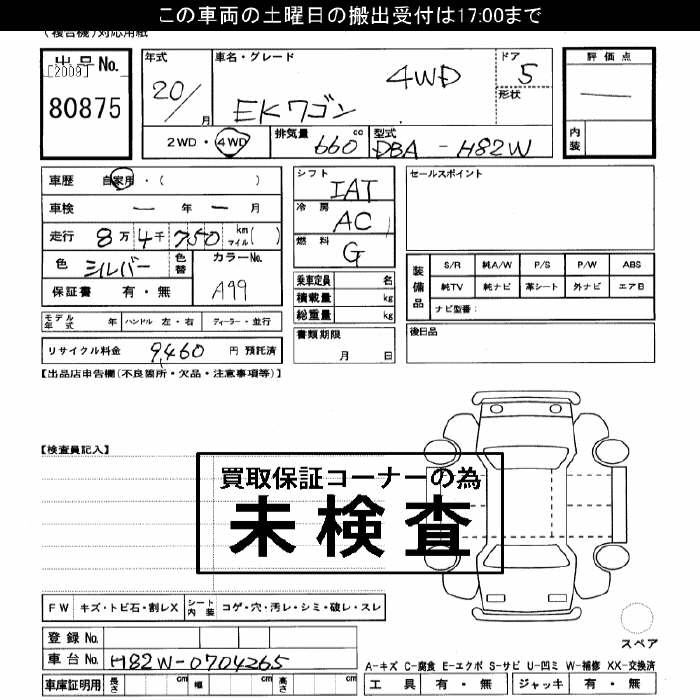 この車両の土曜日の搬出受付は17:00まで
(複合機)対応用紙
出品No. [2009] 80875
年式 20/ 月
車名・グレード EKワゴン 4WD
ドア 5
形状
評価点 —
内装
2WD・4WD
排気量 660 cc
型式 DBA - H82W
車歴 自家用・( )
車検 — 年 — 月
走行 8万4千750 km マイル( )
色 シルバー 色替 カラーNo. A99
保証書 有・無
モデル年式 年 ハンドル 左・右 ディーラー・並行
リサイクル料金 9,460 円 預託済
シフト IAT
冷房 AC
燃料 G
乗車定員 名
積載量 kg
総重量 kg
書類期限 月 日
セールスポイント
装備品 S/R 純A/W P/S P/W ABS
純TV 純ナビ 革シート 外ナビ エアB
ナビ型番:
後日品
【出品店申告欄(不良箇所・欠品・注意事項等)】
【検査員記入】
買取保証コーナーの為
未検査
FW キズ・トビ石・割レX シート内装 コゲ・穴・汚レ・シミ・破レ・スレ
登録No.
車台No. H82W-0704265
車庫証明用 長さ cm 幅 cm 高さ cm
スペア
A-キズ C-腐食 E-エクボ S-サビ U-凹ミ W-補修 XX-交換済
工具 有・無 ジャッキ 有・無